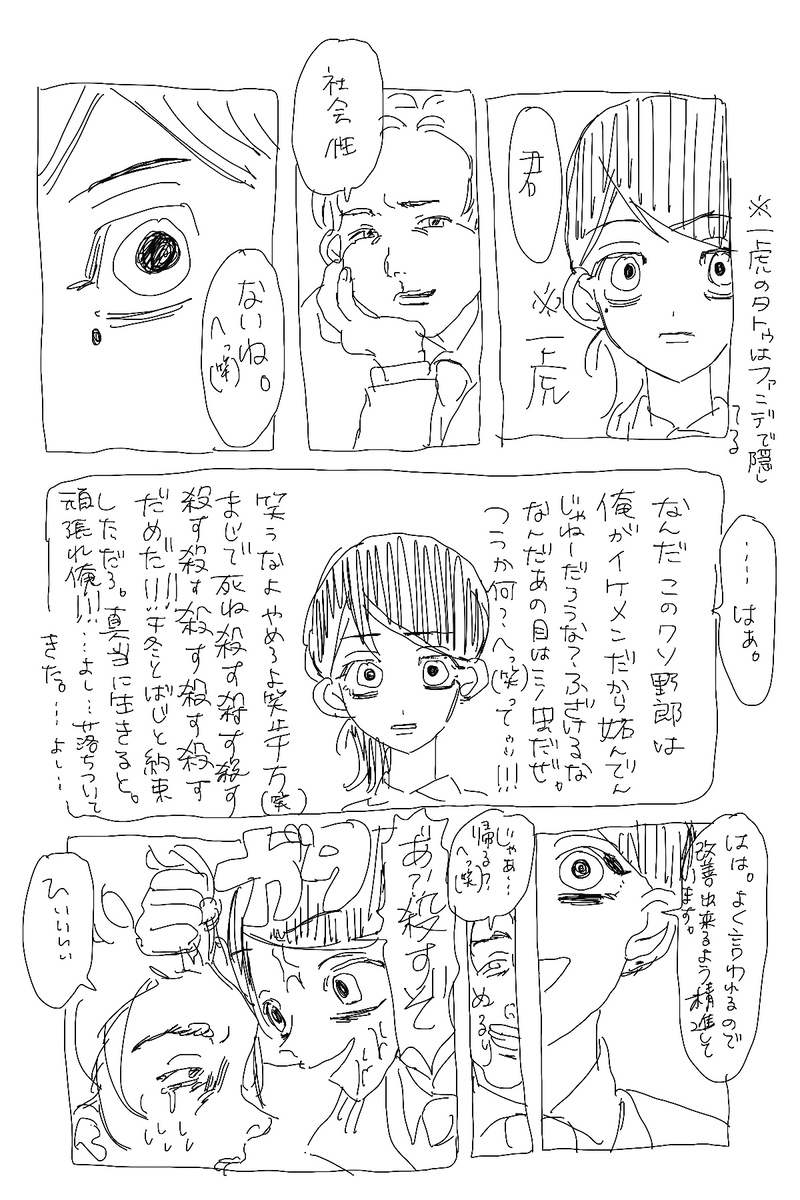 ※一虎のタトゥはファンデで隠し
てる
君
※
一虎
社会
性
ないね。
へっ(笑)
‥‥はぁ。
なんだこのクソ野郎は
俺がイケメンだから妬んでん
じゃねーだろうな?ふざけるな
なんだあの目はミジ虫だぜ。
つうか何?へっ(笑)ってゃぃ!!!
笑うなよやめろよ笑止千万(笑)
まじで死ね殺す殺す殺す
殺す殺す殺す殺す殺す
だめだ!!!!千冬とばじと約束
しただろ。真当に生きると。
頑張れ俺!!!…よし…落ちついて
きた。…よし…
はは。よく言われるので
改善出来るよう精進して
います。
じゃあ…
帰る?
へっ(笑)
ぬるり
あ?殺すぞ
ガタ
ひぃぃぃぃ